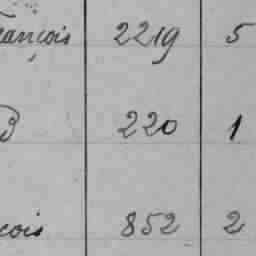 ançois 2219 5
220 1
çois 852 2